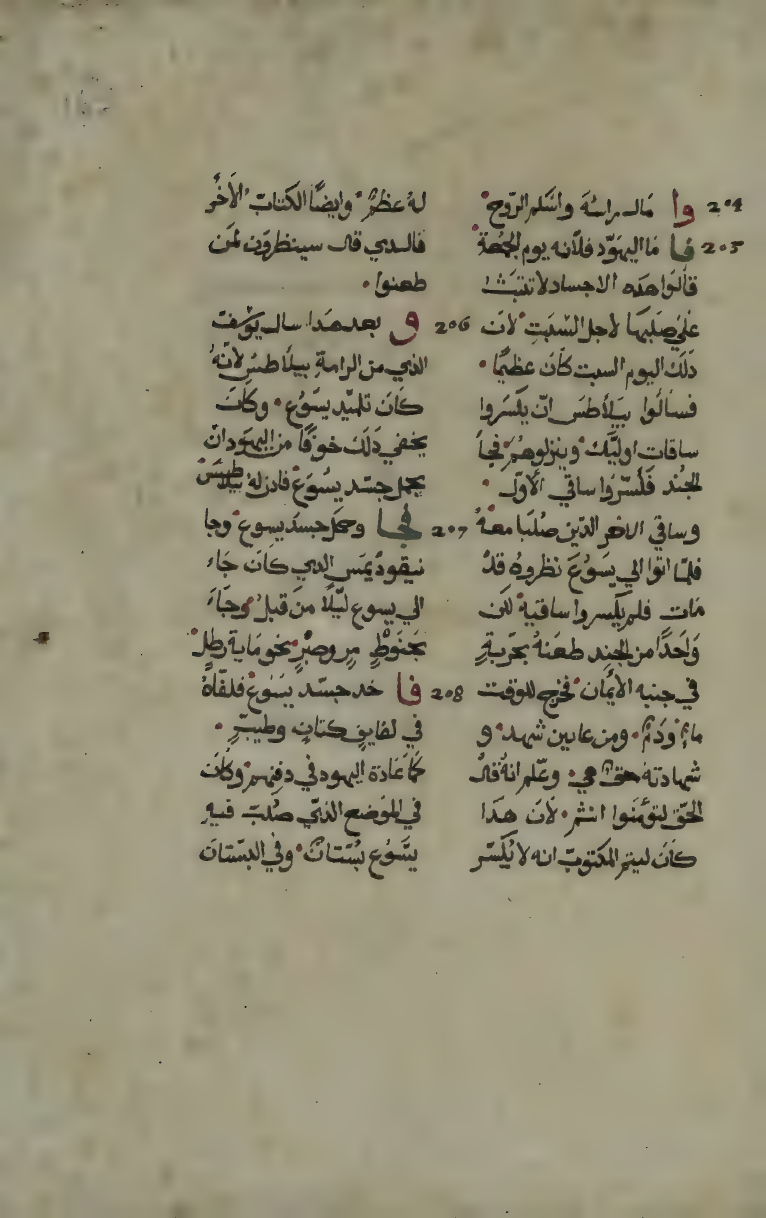 204 وا مال براسه واسلم الروح
205 فا ما اليهود فلانه يوم الجمعة
قالوا هده الاجساد لا تتبث
علي صلبها لاجل السبت لان
دلك اليوم السبت كان عظيما
فسالوا بيلاطس ان يكسروا
ساقات اوليك وينزلوهم فجا
الجند فكسروا ساقي الاول
وساقي الاخر الدين صلبا معه
فلما اتوا الي يسوع نظروه قد
مات فلم يكسروا ساقيه لكن
واحدا من الجند طعنه بحربة
في جنبه الايمان فخرج للوقت
ماء ودم ومن عاين شهد و
شهادته حق هي وعلم انه قال
الحق لتومنوا انتم لان هدا
كان ليتم المكتوب انه لا يكسر
له عظم وايضا الكتاب الاخر
فالدي قال سينظرون لمن
طعنوا
206 و بعد هدا سال يوسف
الدي من الرامة بيلاطس لانه
كان تلميد يسوع وكان
يخفي دلك خوفا من اليهود ان
يحمل جسد يسوع فادن له بيلاطس
207 فجا وحمل جسد يسوع وجا
نيقوديمس الدي كان جاء
الي يسوع ليلا من قبل وجاء
بحنوط مر وصبر نحو ماية رطل
208 فا خد جسد يسوع فلفاه
في لفايف كتان وطيب
كما عادة اليهود في دفنهم وكان
في الموضع الدي صلب فيه
يسوع بستان وفي البستان